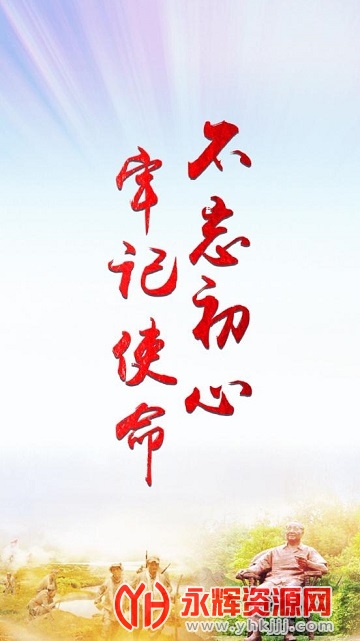 不忘初心
牢记使命
YH 永辉资源网
www.yhkjjj.com